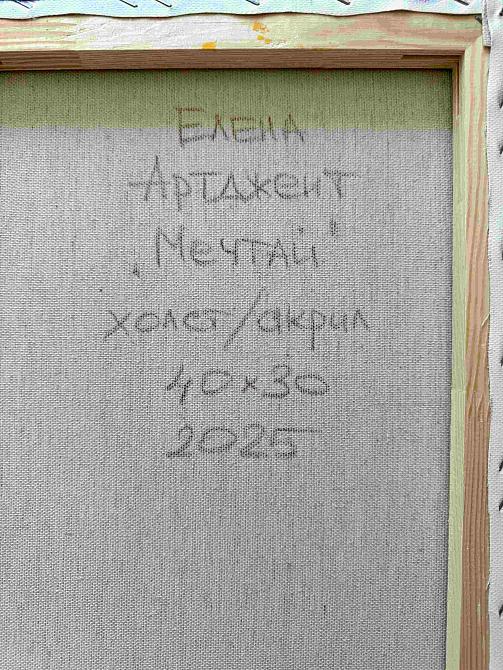 Елена
Артджент
„Мечтай"
холст/акрил
40х30
2025